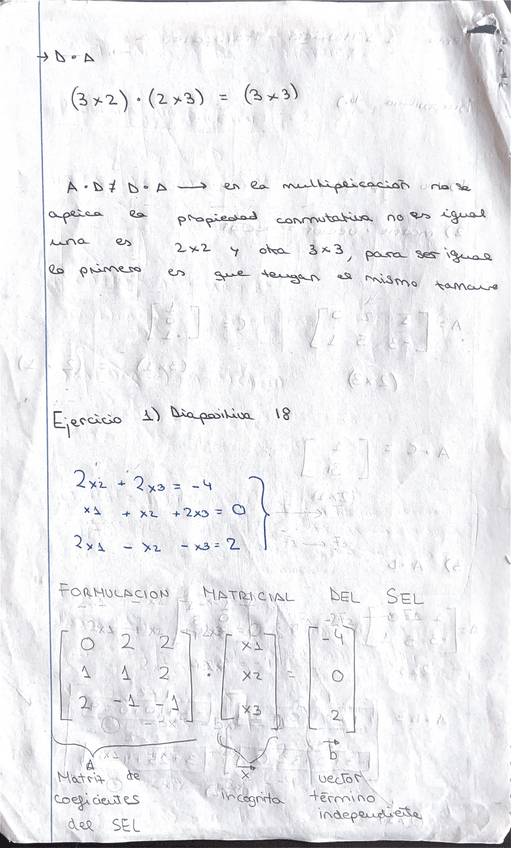 → D · A
(3x2) · (2x3) = (3x3)
A · D ≠ D · A → en la multiplicación no se
aplica la propiedad conmutativa no es igual
una es 2x2 y otra 3x3, para ser igual
lo primero es que tengan el mismo tamaño
Ejercicio 1) Diapositiva 18
2x2 + 2x3 = -4
x1 + x2 + 2x3 = 0
2x1 - x2 - x3 = 2
FORMULACION MATRICIAL DEL SEL
0 2 2 x1 -4
1 1 2 · x2 = 0
2 -1 -1 x3 2
A x b
Matriz de incógnita vector
coeficientes término
del SEL independiente